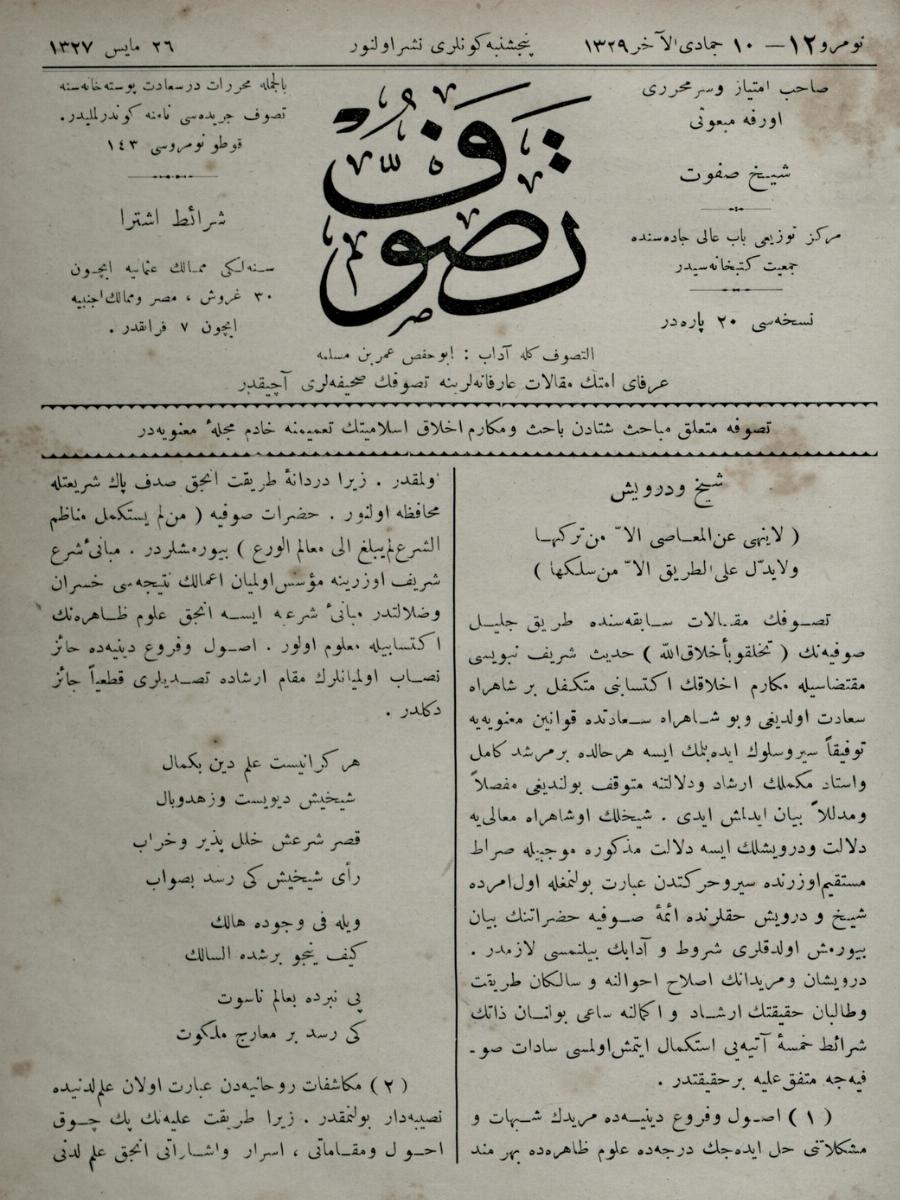 نومرو ١٢ — ١٠ جمادى الآخر ١٣٢٩
پنجشنبه كونلرى نشر اولنور
٢٦ مايس ١٣٢٧
صاحب امتياز وسرمحررى
اورفه مبعوثى
شيخ صفوت
مركز توزيعى باب عالى جاده‌سنده
جمعيت كتبخانه‌سيدر
نسخه‌سى ٢٠ پاره‌در
تصوف
بالجمله محررات درسعادت پوسته‌خانه‌سنه
تصوف جريده‌سى نامنه كوندرلمليدر.
قوطو نومروسى ١٤٣
شرائط اشترا
سنه‌لكى ممالك عثمانيه ايچون
٣٠ غروش ، مصر وممالك اجنبيه
ايچون ٧ فرانقدر .
التصوف كله آداب : ابوحفص عمر بن مسلمه
عرفاى امتك مقالات عارفانه‌لرينه تصوفك صحيفه‌لرى آچيقدر
تصوفه متعلق مباحث شتادن باحث ومكارم اخلاق اسلاميتك تعميمنه خادم مجلهٔ معنويه‌در
شيخ ودرويش
( لاينهى عن المعاصى الاّ من تركها
ولايدّل على الطريق الاّ من سلكها )
تصوفك مقالات سابقه‌سنده طريق جليل
صوفيه‌نك ( تخلقو بأخلاق الله ) حديث شريف نبويسى
مقتضاسيله مكارم اخلاقك اكتسابنى متكفل بر شاهراه
سعادت اولديغى وبو شاهراه سعادتده قوانين معنويه‌يه
توفيقاً سيروسلوك ايده‌بلمك ايسه هرحالده برمرشد كامل
واستاد مكملك ارشاد ودلالتنه متوقف بولنديغى مفصلاً
ومدللاً بيان ايدلمش ايدى . شيخلك اوشاهراه معالى‌يه
دلالت ودرويشلك ايسه دلالت مذكوره موجبيله صراط
مستقيم اوزرنده سيروحركتدن عبارت بولنمغله اول امرده
شيخ و درويش حقلرنده ائمهٔ صوفيه حضراتنك بيان
بيورمش اولدقلرى شروط و آدابك بيلنمسى لازمدر .
درويشان ومريدانك اصلاح احوالنه و سالكان طريقت
وطالبان حقيقتك ارشاد و اكمالنه ساعى بولنان ذاتك
شرائط خمسهٔ آتيه‌يى استكمال ايتمش اولمسى سادات صو-
فيه‌جه متفق عليه برحقيقتدر .
( ١ ) اصول وفروع دينيه‌ده مريدك شبهات و
مشكلاتنى حل ايده‌جك درجه‌ده علوم ظاهره‌ده بهر مند
اولمقدر . زيرا دردانهٔ طريقت انجق صدف پاك شريعتله
محافظه اولنور . حضرات صوفيه ( من لم يستكمل مناظم
الشرع لم يبلغ الى معالم الورع ) بيورمشلردر . مبانئ شرع
شريف اوزرينه مؤسس اولميان اعمالك نتيجه‌سى خسران
وضلالتدر مبانئ شرعيه ايسه انجق علوم ظاهره‌نك
اكتسابيله معلوم اولور . اصول وفروع دينيه‌ده حائز
نصاب اولميانلرك مقام ارشاده تصديلرى قطعياً جائز
دكلدر .
هر كرانيست علم دين بكمال
شيخيش ديويست وزهدوبال
قصر شرعش خلل پذير وخراب
رأى شيخيش كى رسد بصواب
ويله فى وجوده هالك
كيف ينجو برشده السالك
پى نبرده بعالم ناسوت
كى رسد بر معارج ملكوت
( ٢ ) مكاشفات روحانيه‌دن عبارت اولان علم لدنيده
نصيبه‌دار بولنمقدر . زيرا طريقت عليه‌نك پك چوق
احول ومقاماتى ، اسرار واشاراتى انجق علم لدنى